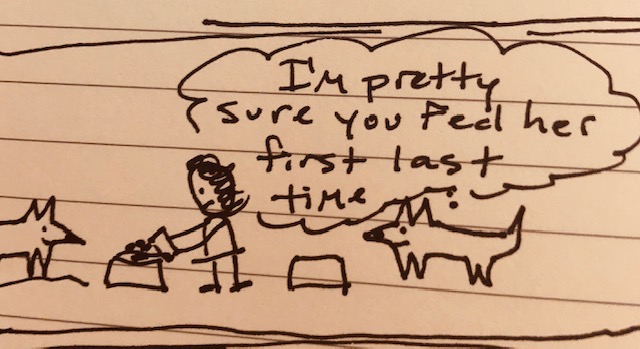 I'm pretty
sure you fed her
first last
time